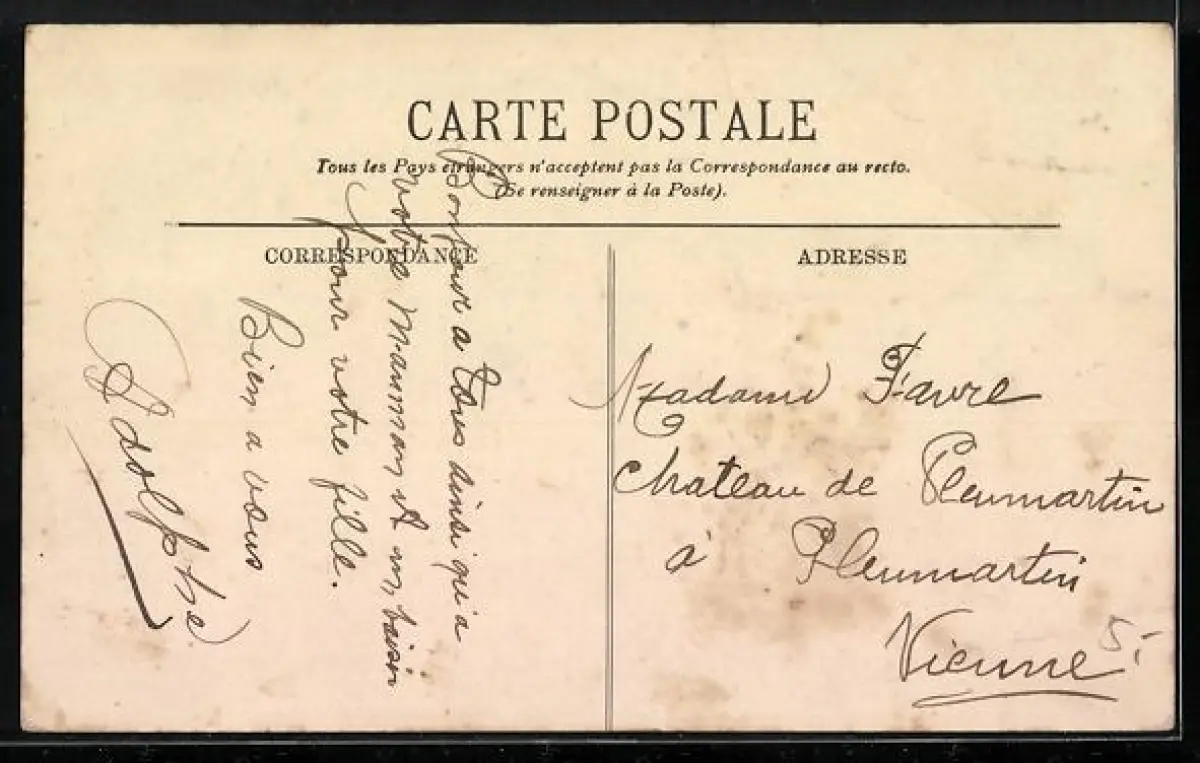 CARTE POSTALE
Tous les Pays étrangers n'acceptent pas la Correspondance au recto.
(Se renseigner à la Poste).
CORRESPONDANCE
Bonjour a Tous ainsi qu'a
votre Maman et un baiser
pour votre fille.
Bien a vous
Adolphe
ADRESSE
Madame Favre
Chateau de Pleumartin
à Pleumartin
Vienne